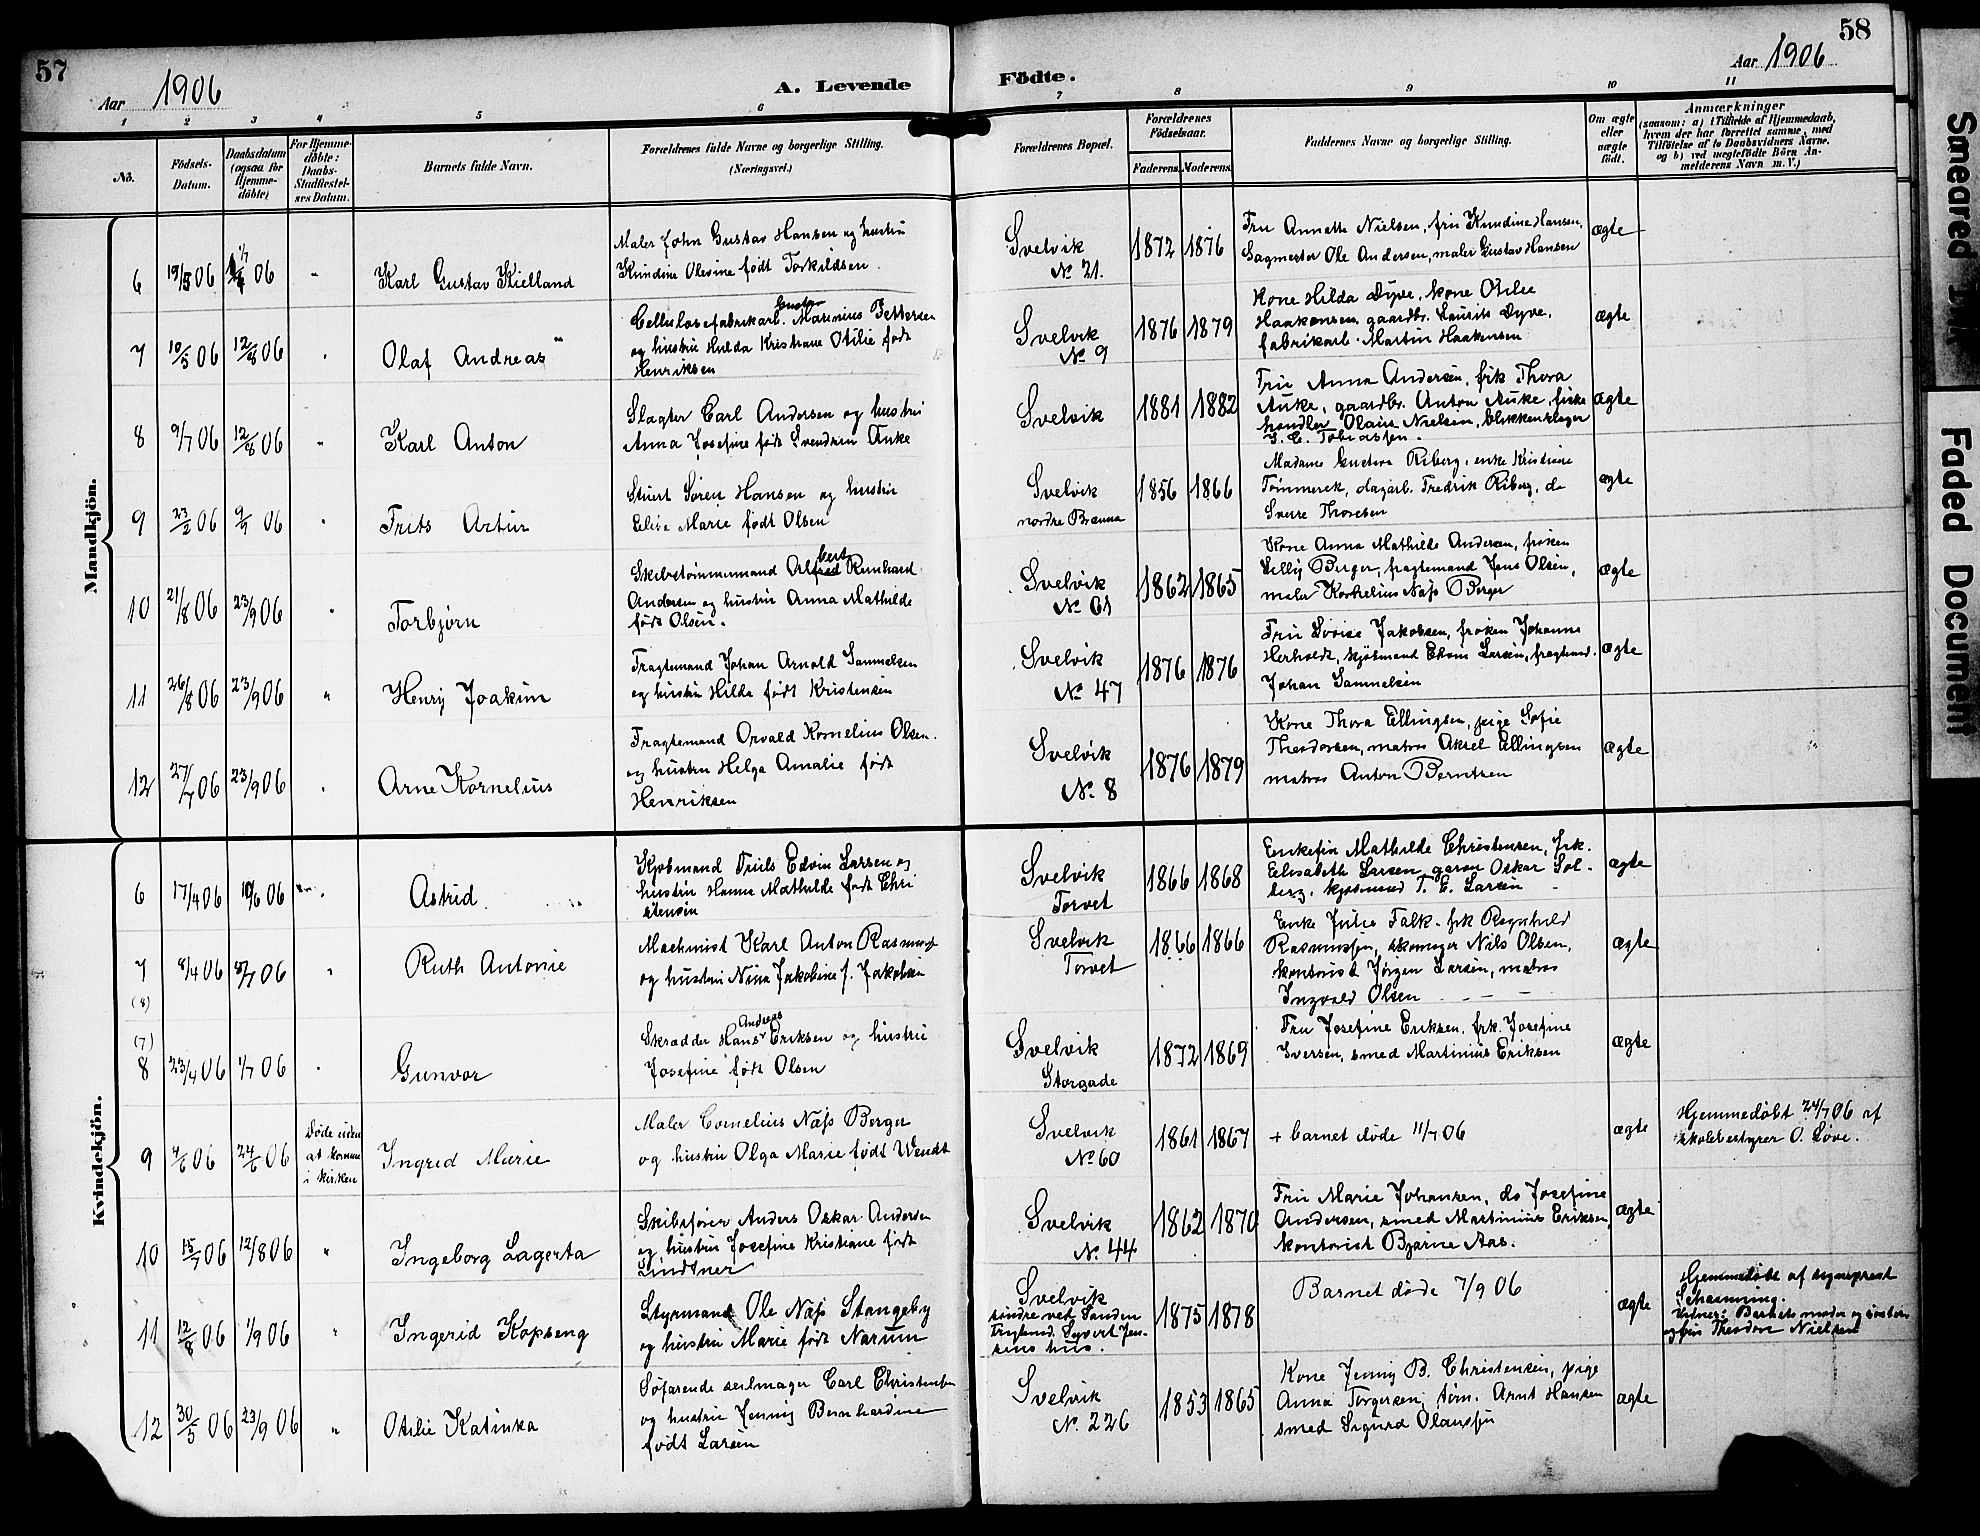 57
Aar 1906
A. Levende
Födte.
58
Aar 1906
1 2 3 4 5 6 7 8 9 10 11
No.
Födsels-
Datum.
Daabsdatum
(ogsaa for
Hjemme-
döbte)
For Hjemme-
döbte:
Daabs-
Stadfæstel-
ses Datum.
Barnets fulde Navn.
Forældrenes fulde Navne og borgerlige Stilling.
(Næringsvei.)
Forældrenes Bopæl.
Forældrenes
Födselsaar.
Faderens. Moderens.
Faddernes Navne og borgerlige Stilling.
Om ægte
eller
uægte
födt.
Anmærkninger
(saasom: a) i Tilfælde af Hjemmedaab,
hvem der har forrettet samme, med
Tilföielse af to Daabsvidners Navne,
og b) ved uægtefödte Börn An-
melderens Navn m. V.)
Mandkjön.
6 19/5 06 1/7 06 " Karl Gustav Kielland
Maler John Gustav Hansen og hustru
Kundine Olevine født Torkildsen.
Svelvik
No 21.
1872 1876
Fru Annette Nielsen, fru Kundine Hansen,
Sagmester Ole Andersen, maler Gustav Hansen
ægte
7 10/5 06 12/8 06 " Olaf Andreas
Gustav
Cellulosefabrikarb. Marinius Pettersen
og hustru Hulda Kristiane Otilie født
Henriksen
Svelvik
No 9
1876 1879
Kone Hilda Dyve, kone Otilie
Haakensen, gaardbr. Laurits Dyve,
fabrikarb. Martin Haakensen
ægte
8 9/7 06 12/8 06 " Karl Anton
Slagter Carl Andersen og hustru
Anna Josefine født Svendsen Auke
Svelvik
1881 1882
Fru Anna Andersen, frk Thora
Auke, gaardbr. Anton Auke, fiske
handler Olaus Nielsen, blikkenslager
Tobiassen.
ægte
9 23/2 06 9/9 06 " Frits Artur
Stuert Søren Hansen og hustru
Elise Marie født Olsen
Svelvik
nordre Brænna
1856 1866
Madame Gustava Riberg, enke Kristiane
Tømmerek, dagarb. Fredrik Riberg, do
Sverre Thoresen
ægte
10 21/8 06 23/9 06 " Torbjørn
bert
Skibstømmermand Alfred Reinhard
Andersen og hustru Anna Mathilde
født Olsen.
Svelvik
No 61
1862 1865
Kone Anna Mathilde Andersen, frøken
Lilly Berger, fragtemand Jens Olsen,
maler Kornelius Næss Berger
ægte
11 26/8 06 23/9 06 " Henry Joakim
Fragtemand Johan Arnold Samuelsen
og hustru Hilda født Kristensen
Svelvik
No 47
1876 1876
Fru Lovise Jakobsen, frøken Johanne
Herholdt, kjøbmand Edvin Larsen, fragtemd.
Johan Samuelsen
ægte
12 27/7 06 23/9 06 " Arne Kornelius
Fragtemand Orvald Kornelius Olsen.
og hustru Helga Amalie født
Henriksen
Svelvik
No 8
1876 1879
Kone Thora Ellingsen, pige Sofie
Theodorsen, matros Aksel Ellingsen
matros Anton Berntsen
ægte
Kvindekjön.
6 17/4 06 10/6 06 " Astrid
Kjøbmand Truls Edvin Larsen og
hustru Hanna Mathilde født Chri
stensen
Svelvik
Torvet
1866 1868
Enkefru Mathilde Christensen, frk.
Elisabeth Larsen, garver Oskar Sol-
berg, kjøbmand T. E. Larsen
ægte
7 8/4 06 8/7 06 " Ruth Antonie
(8)
Maskinist Karl Anton Rasmuss
og hustru Nina Jakobine f. Jakobsen
Svelvik
Torvet
1866 1866
Enke Julie Falk. frk Ragnhild
Rasmussen, skomager Nils Olsen,
kontorist Jørgen Larsen, matros
Ingvald Olsen
ægte
(7)
8 23/4 06 1/7 06 " Gunvor
Andreas
Skrædder Hans Eriksen og hustru
Josefine født Olsen
Svelvik
Storgade
1872 1869
Fru Josefine Eriksen, frk. Josefine
Iversen, smed Martinius Eriksen
ægte
9 4/6 06 24/6 06
Døde uden
at komme
i kirken
Ingrid Marie
Maler Cornelius Næss Berger
og hustru Olga Marie født Wendt
Svelvik
No 60
1861 1867
+ barnet døde 11/7 06
ægte
Hjemmedøbt 24/7 06 af
skolebestyrer O. Løve.
10 15/7 06 12/8 06 " Ingeborg Lagerta
Skibsfører Anders Oskar Andersen
og hustru Josefine Kristiane født
Lindtner
Svelvik
No 44
1862 1870
Fru Marie Johansen, do Josefine
Andersen, smed Martinius Eriksen
kontorist Bjarne Aas.
ægte
11 12/8 06 1/9 06 " Ingerid Kopseng
Styrmand Ole Næss Stangeby
og hustru Marie født Narum
Svelvik
søndre ved Sanden
Syvert Jen-
sens hus.
1875 1878
Barnet døde 7/9 06
ægte
Hjemmedøbt af sogneprest
Schanning.
Vidner: Barnets moder og
og fru Theodor Nielsen
12 30/5 06 23/9 06 " Otilie Katinka
Søfarende seilmager Carl Christensen
og hustru Jenny Bernhardine
født Larsen
Svelvik
No. 226
1853 1865
Kone Jenny B. Christensen, pige
Anna Torgersen, tøm. Arnt Hansen
smed Sigurd Olaussen
ægte
Smeared Ink
Faded Document